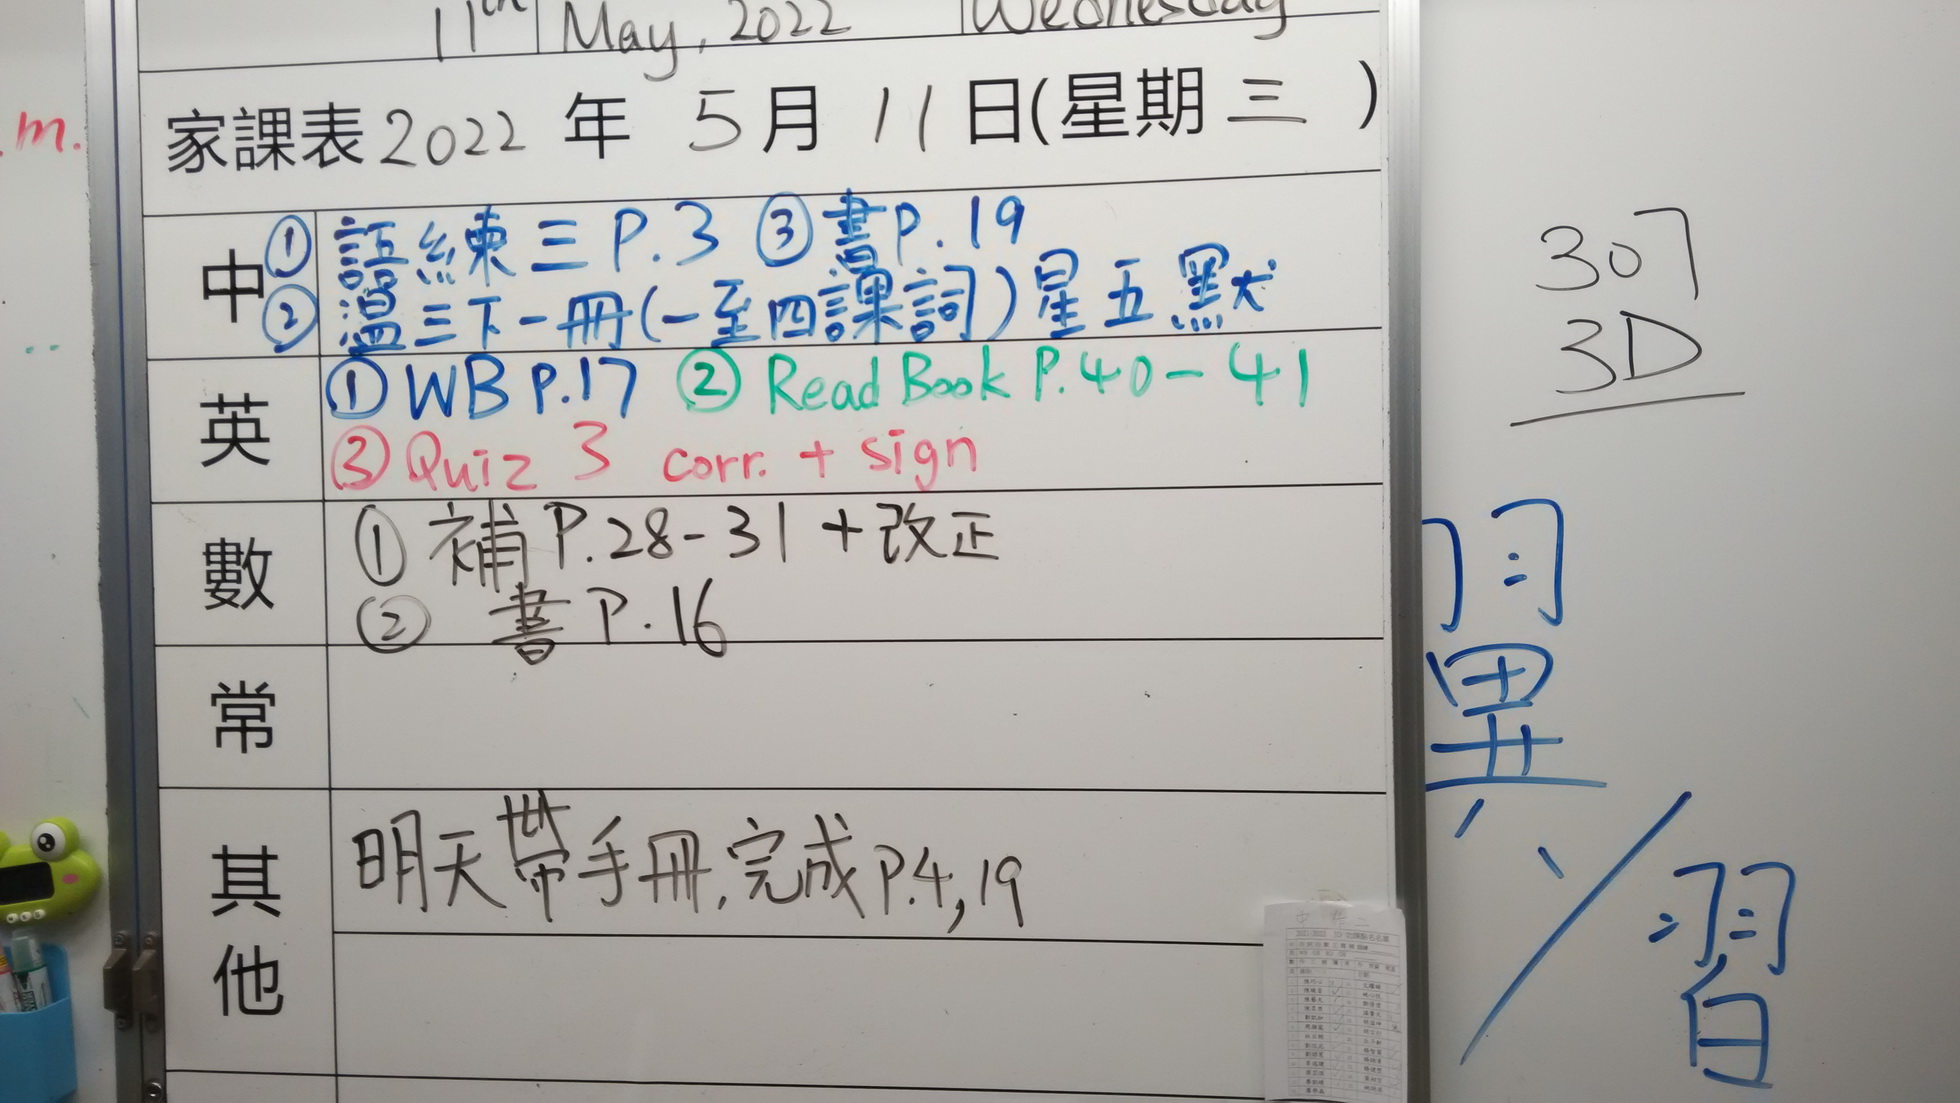 11th May, 2022 Wednesday
m.
家課表 2022 年 5 月 11 日(星期 三 )
中 ① 語練三 P.3 ③ 書P.19
② 溫三下一冊(一至四課詞)星五默
英 ① WB P.17 ② Read Book P.40-41
③ Quiz 3 corr. + sign
數 ① 補P.28-31 +改正
② 書 P.16
常
其他 明天帶手冊,完成P.4,19
307
3D
翼
習